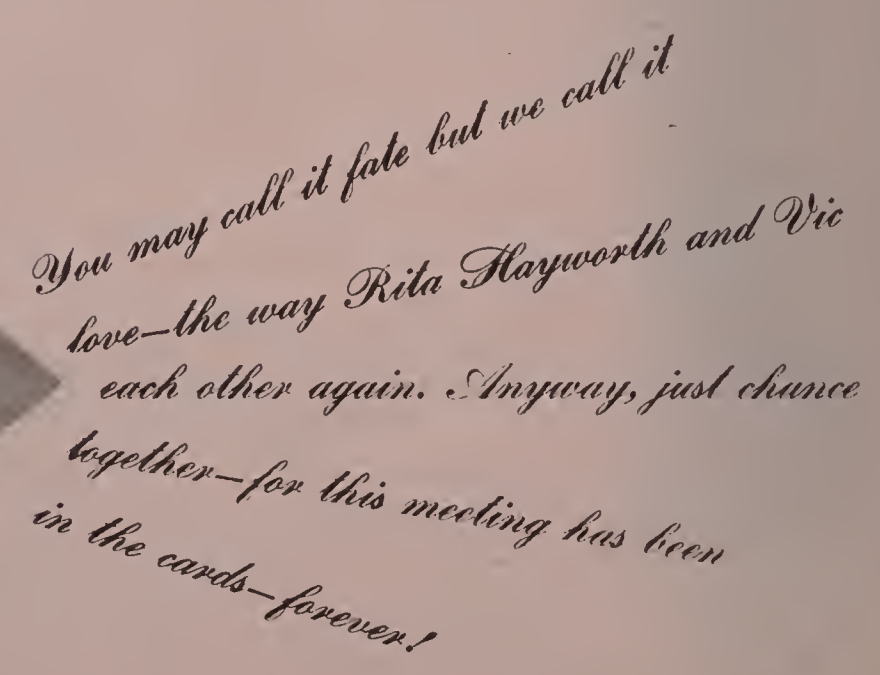 You may call it fate but we call it
love—the way Rita Hayworth and Vic
each other again. Anyway, just chance
together—for this meeting has been
in the cards—forever!